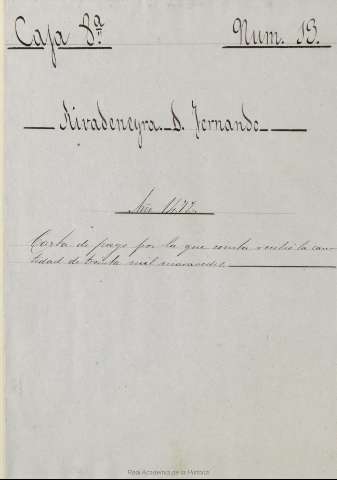 Caja 8ª
Num. 13.
Rivadeneyra. D. Fernando
Año 1477.
Carta de pago por la que consta recibió la can-
tidad de treinta mil maravedis.
Real Academia de la Historia